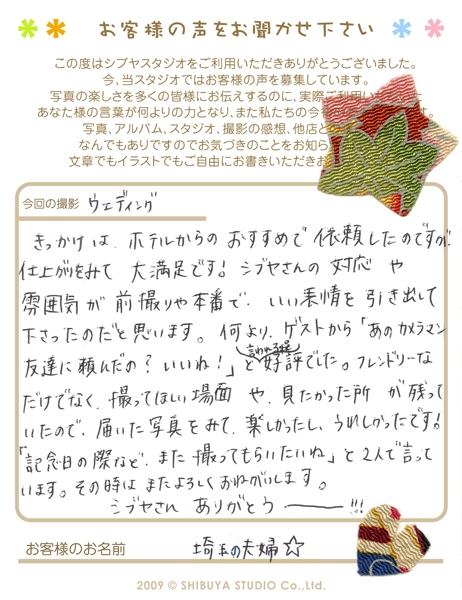 お客様の声をお聞かせ下さい
この度はシブヤスタジオをご利用いただきありがとうございました。
今、当スタジオではお客様の声を募集しています。
写真の楽しさを多くの皆様にお伝えするのに、実際ご利用い
あなた様の言葉が何よりの力となり、また私たちの今 す。
写真、アルバム、スタジオ、撮影の感想、他店と
なんでもありですのでお気づきのことをお知ら
文章でもイラストでもご自由にお書きいただきお
今回の撮影 ウェディング
きっかけは、ホテルからのおすすめで依頼したのですが
仕上がりをみて 大満足です! シブヤさんの対応や
雰囲気が前撮りや本番で、いい表情を引き出して
下さったのだと思います。何より、ゲストから「あのカメラマン
友達に頼んだの?いいね!」と言われる程好評でした。フレンドリーな
だけでなく、撮ってほしい場面や、見たかった所が残って
いたので、届いた写真をみて、楽しかったし、うれしかったです!
「記念日の際など、また撮ってもらいたいね」と2人で言って
います。その時はまたよろしくおねがいします。
シブヤさん ありがとう―――!!!
お客様のお名前 埼玉の夫婦☆
2009 © SHIBUYA STUDIO Co.,Ltd.